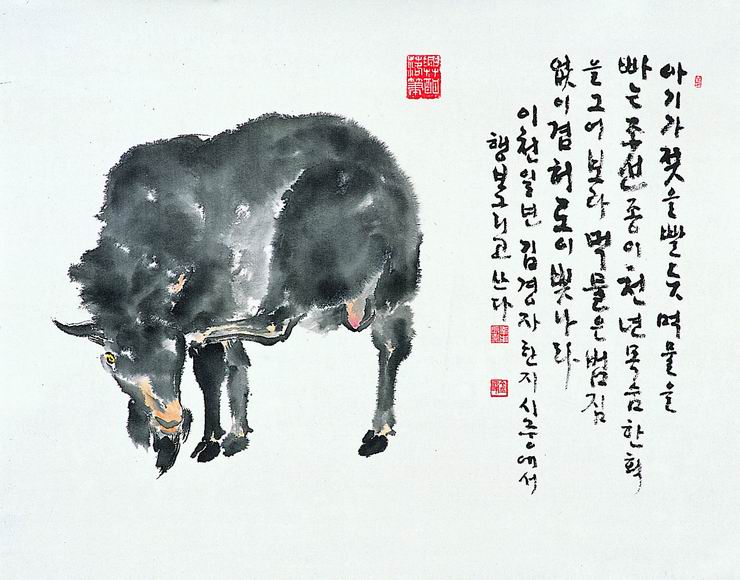 아기가 젖을 빨듯 먹물을
빠는 조선종이 천년목숨 한획
을 그어 보라 먹물은 번짐
없이 겸허로이 빛나라
이천일년 김경자 한지 시중에서
행보 그리고 산다